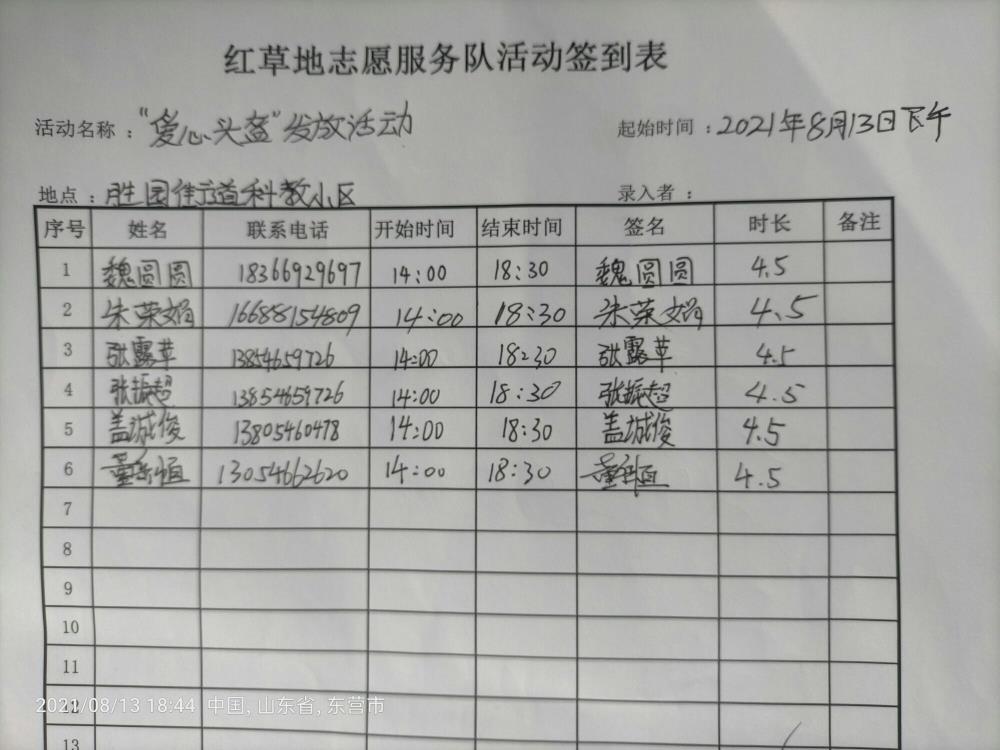 红草地志愿服务队活动签到表
活动名称：“爱心头盔”发放活动 起始时间：2021年8月13日下午
地点：胜园街道科教小区 录入者：
序号 姓名 联系电话 开始时间 结束时间 签名 时长 备注
1 魏圆圆 18366929697 14:00 18:30 魏圆圆 4.5
2 朱荣娟 16688154809 14:00 18:30 朱荣娟 4.5
3 张露苹 13854659726 14:00 18:30 张露苹 4.5
4 张振超 13854659726 14:00 18:30 张振超 4.5
5 盖城俊 13805460478 14:00 18:30 盖城俊 4.5
6 13054662620 14:00 18:30 4.5
7
8
9
10
11
12
13
2021/08/13 18:44 中国, 山东省, 东营市